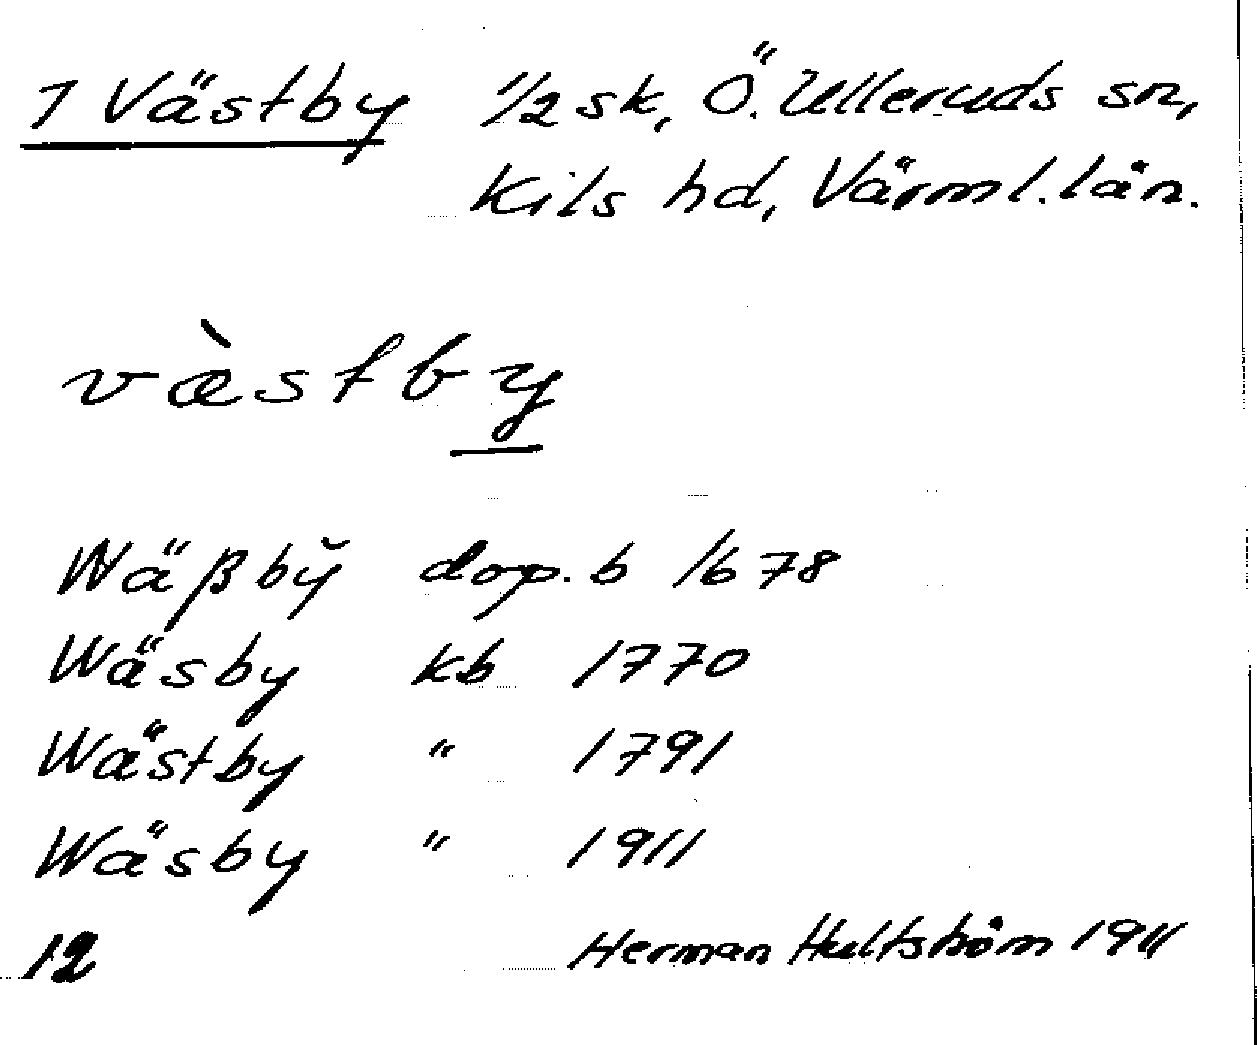 1 Västby 1/2 sk, Ö. Ulleruds sn,
Kils hd, Värml. län.
væ̀stby
Wäßbÿ dop. b 1678
Wäsby kb 1770
Wästby " 1791
Wäsby " 1911
12 Herman Hultström 1911